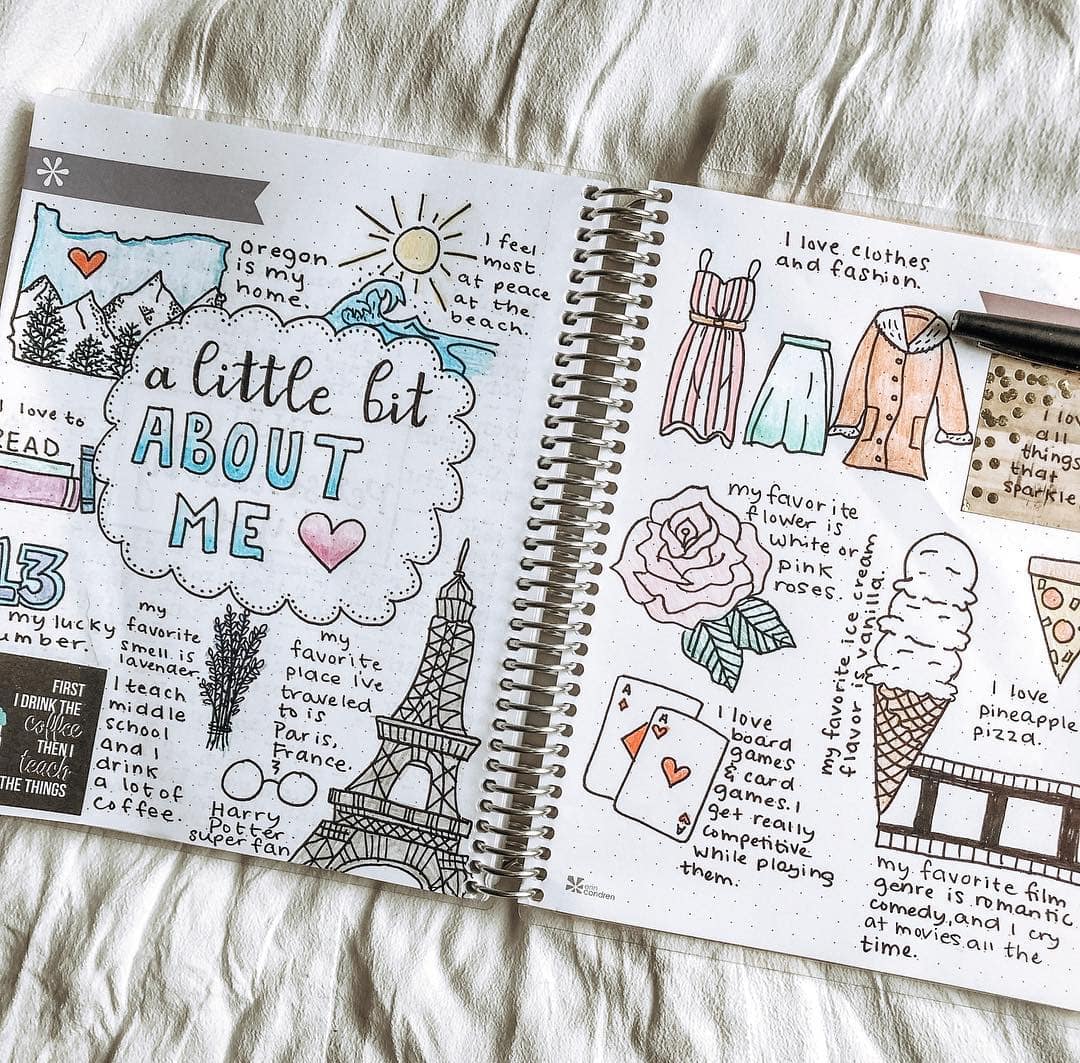 Oregon
is my
home.
I feel
most
at peace
at the
beach.
a little bit
ABOUT
ME
I love to
EAD
13
my lucky
umber.
my
favorite
smell is
lavender.
my
favorite
place I've
traveled
to is
Paris,
France.
FIRST
I DRINK THE
coffee
THEN I
teach
THE THINGS
I teach
middle
school
and I
drink
a lot of
coffee.
Harry
Potter
super fan
I love clothes
and fashion.
I lov
all
things
that
sparkle
my favorite
flower is
white or
pink
roses.
my favorite ice cream
flavor is vanilla.
I love
pineapple
pizza.
A
A
A
I love
board
games
& card
games. I
get really
competitive
while playing
them.
my favorite film
genre is romantic
comedy, and I cry
at movies all the
time.
erin
condren